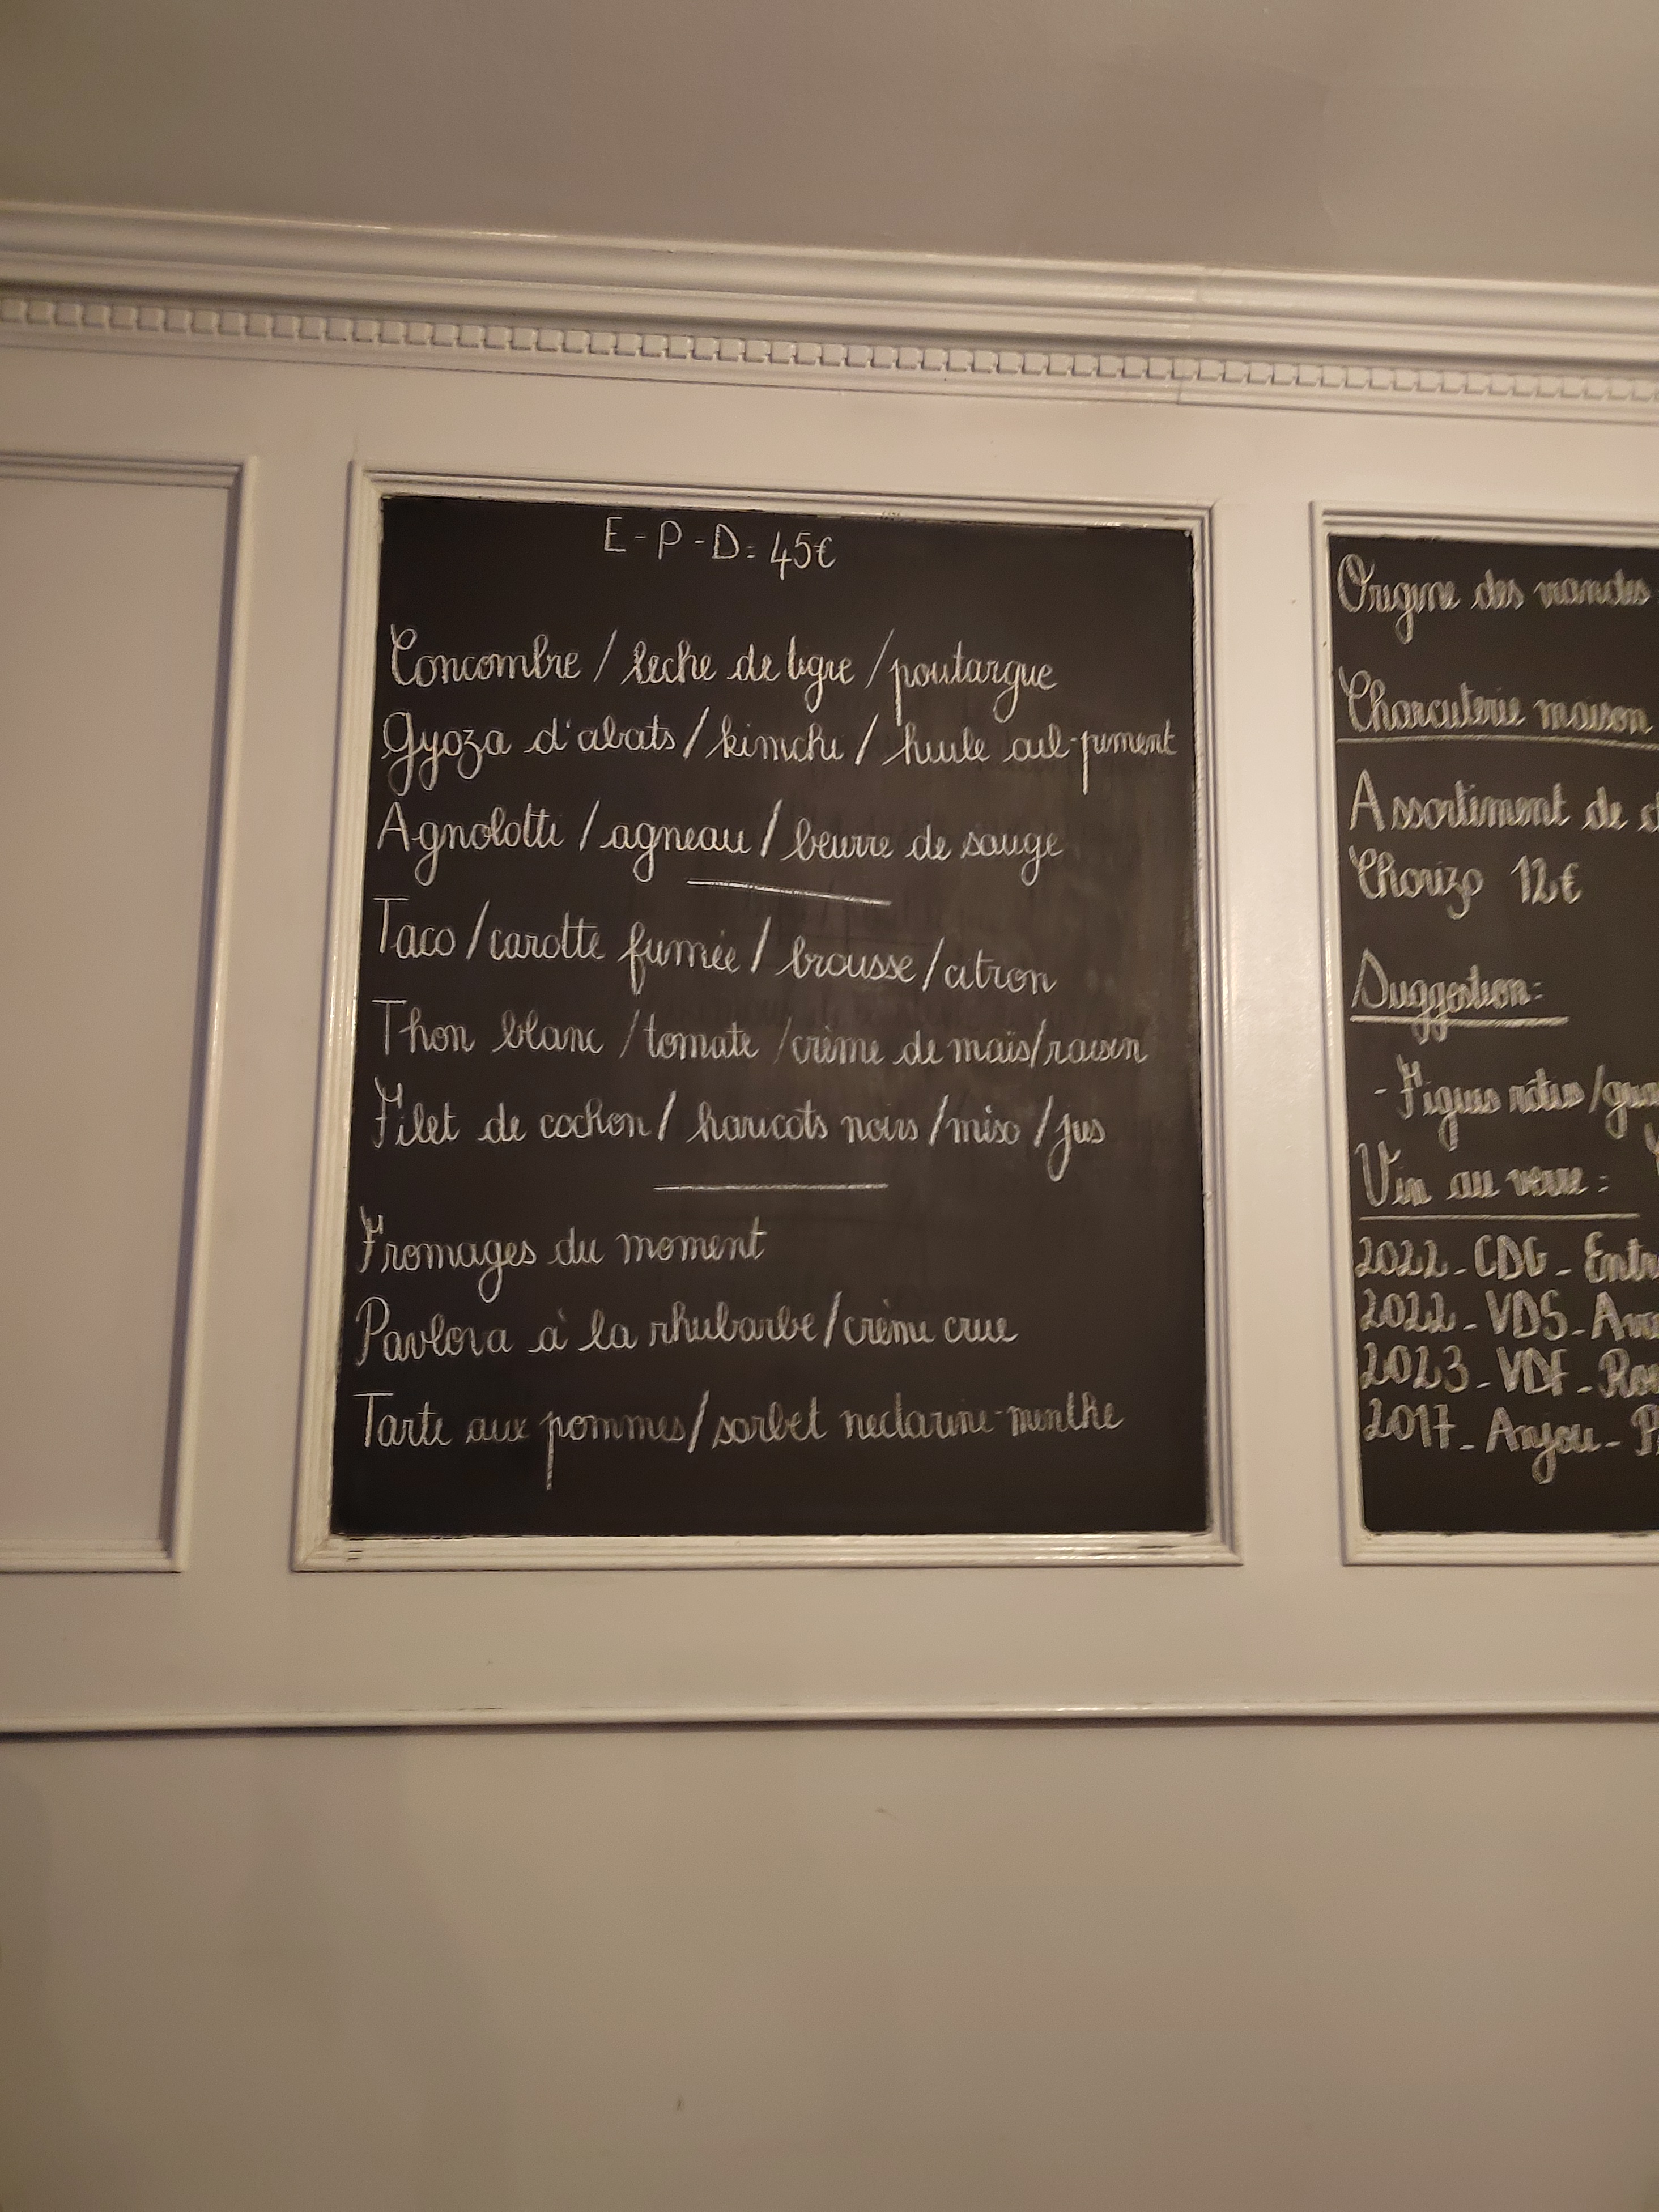 E - P - D = 45€
Concombre / leche de tigre / poutargue
Gyoza d'abats / kimchi / huile ail-piment
Agnolotti / agneau / beurre de sauge
Taco / carotte fumée / brousse / citron
Thon blanc / tomate / crème de maïs / raisin
Filet de cochon / haricots noirs / miso / jus
Fromages du moment
Pavlova à la rhubarbe / crème crue
Tarte aux pommes / sorbet nectarine-menthe
Origine des viandes
Charcuterie maison
Assortiment de
Chorizo 12€
Suggestion:
- Figues rôties /
Vin au verre :
2022 - CDG - Entr
2022 - VDS -
2023 - VDF -
2017 - Anjou -